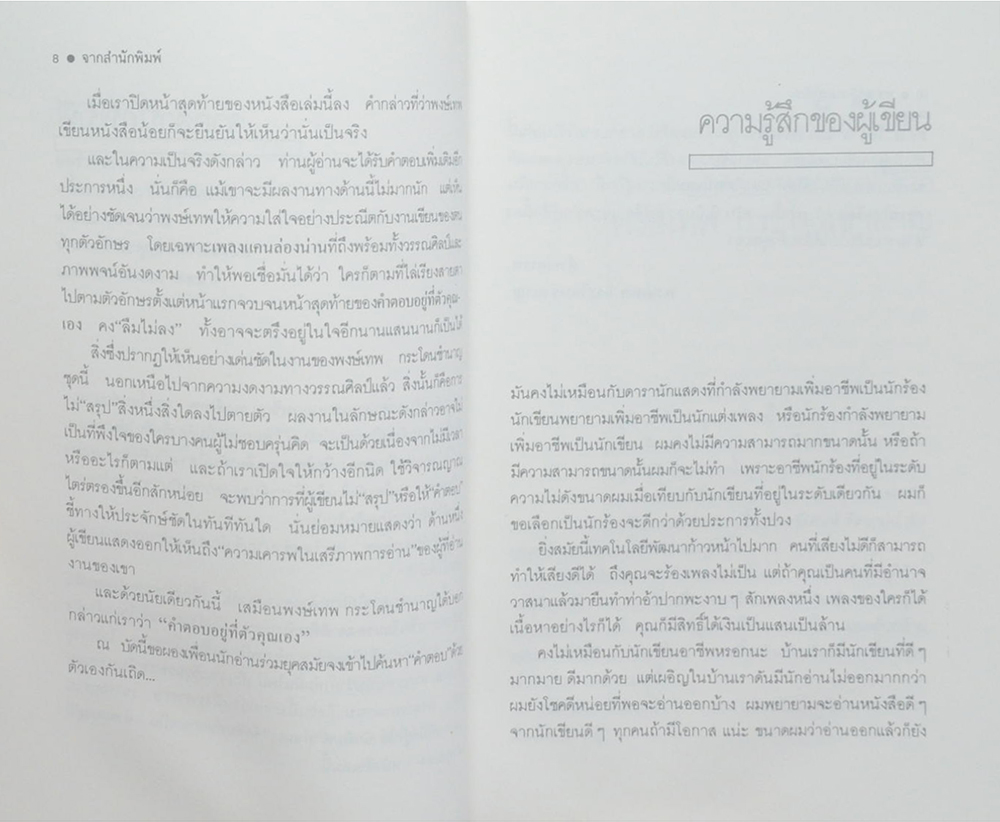 8 ● จากสำนักพิมพ์
เมื่อเราปิดหน้าสุดท้ายของหนังสือเล่มนี้ลง คำกล่าวที่ว่าพงษ์เทพ
เขียนหนังสือน้อยก็จะยืนยันให้เห็นว่านั่นเป็นจริง
และในความเป็นจริงดังกล่าว ท่านผู้อ่านจะได้รับคำตอบเพิ่มเติมอีก
ประการหนึ่ง นั่นก็คือ แม้เขาจะมีผลงานทางด้านนี้ไม่มากนัก แต่เห็น
ได้อย่างชัดเจนว่าพงษ์เทพให้ความใส่ใจอย่างประณีตกับงานเขียนของตน
ทุกตัวอักษร โดยเฉพาะเพลงแคนล่องน่านที่ถึงพร้อมทั้งวรรณศิลป์และ
ภาพพจน์อันงดงาม ทำให้พอเชื่อมั่นได้ว่า ใครก็ตามที่ไล่เรียงสายตา
ไปตามตัวอักษรตั้งแต่หน้าแรกจวบจนหน้าสุดท้ายของคำตอบอยู่ที่ตัวคุณ-
เอง คง“ลืมไม่ลง” ทั้งอาจจะตรึงอยู่ในใจอีกนานแสนนานก็เป็นได้
สิ่งซึ่งปรากฏให้เห็นอย่างเด่นชัดในงานของพงษ์เทพ กระโดนชำนาญ
ชุดนี้ นอกเหนือไปจากความงดงามทางวรรณศิลป์แล้ว สิ่งนั้นก็คือการ
ไม่“สรุป”สิ่งหนึ่งสิ่งใดลงไปตายตัว ผลงานในลักษณะดังกล่าวอาจไม่
เป็นที่พึงใจของใครบางคนผู้ไม่ชอบครุ่นคิด จะเป็นด้วยเนื่องจากไม่มีเวลา
หรืออะไรก็ตามแต่ และถ้าเราเปิดใจให้กว้างอีกนิด ใช้วิจารณญาณ
ไตร่ตรองขึ้นอีกสักหน่อย จะพบว่าการที่ผู้เขียนไม่“สรุป”หรือให้“คำตอบ”
ชี้ทางให้ประจักษ์ชัดในทันทีทันใด นั่นย่อมหมายแสดงว่า ด้านหนึ่ง
ผู้เขียนแสดงออกให้เห็นถึง“ความเคารพในเสรีภาพการอ่าน”ของผู้ที่อ่าน
งานของเขา
และด้วยนัยเดียวกันนี้ เสมือนพงษ์เทพ กระโดนชำนาญได้บอก
กล่าวแก่เราว่า “คำตอบอยู่ที่ตัวคุณเอง”
ณ บัดนี้ขอผองเพื่อนนักอ่านร่วมยุคสมัยจงเข้าไปค้นหา“คำตอบ”ด้วย
ตัวเองกันเถิด...
ความรู้สึกของผู้เขียน
มันคงไม่เหมือนกับดารานักแสดงที่กำลังพยายามเพิ่มอาชีพเป็นนักร้อง
นักเขียนพยายามเพิ่มอาชีพเป็นนักแต่งเพลง หรือนักร้องกำลังพยายาม
เพิ่มอาชีพเป็นนักเขียน ผมคงไม่มีความสามารถมากขนาดนั้น หรือถ้า
มีความสามารถขนาดนั้นผมก็จะไม่ทำ เพราะอาชีพนักร้องที่อยู่ในระดับ
ความไม่ดังขนาดผมเมื่อเทียบกับนักเขียนที่อยู่ในระดับเดียวกัน ผมก็
ขอเลือกเป็นนักร้องจะดีกว่าด้วยประการทั้งปวง
ยิ่งสมัยนี้เทคโนโลยีพัฒนาก้าวหน้าไปมาก คนที่เสียงไม่ดีก็สามารถ
ทำให้เสียงดีได้ ถึงคุณจะร้องเพลงไม่เป็น แต่ถ้าคุณเป็นคนที่มีอำนาจ
วาสนาแล้วมายืนทำท่าอ้าปากพะงาบๆ สักเพลงหนึ่ง เพลงของใครก็ได้
เนื้อหาอย่างไรก็ได้ คุณก็มีสิทธิ์ได้เงินเป็นแสนเป็นล้าน
คงไม่เหมือนกับนักเขียนอาชีพหรอกนะ บ้านเราก็มีนักเขียนที่ดีๆ
มากมาย ดีมากด้วย แต่เผอิญในบ้านเราดันมีนักอ่านไม่ออกมากกว่า
ผมยังโชคดีหน่อยที่พอจะอ่านออกบ้าง ผมพยายามจะอ่านหนังสือดีๆ
จากนักเขียนดีๆ ทุกคนถ้ามีโอกาส แน่ะ ขนาดผมว่าอ่านออกแล้วก็ยัง